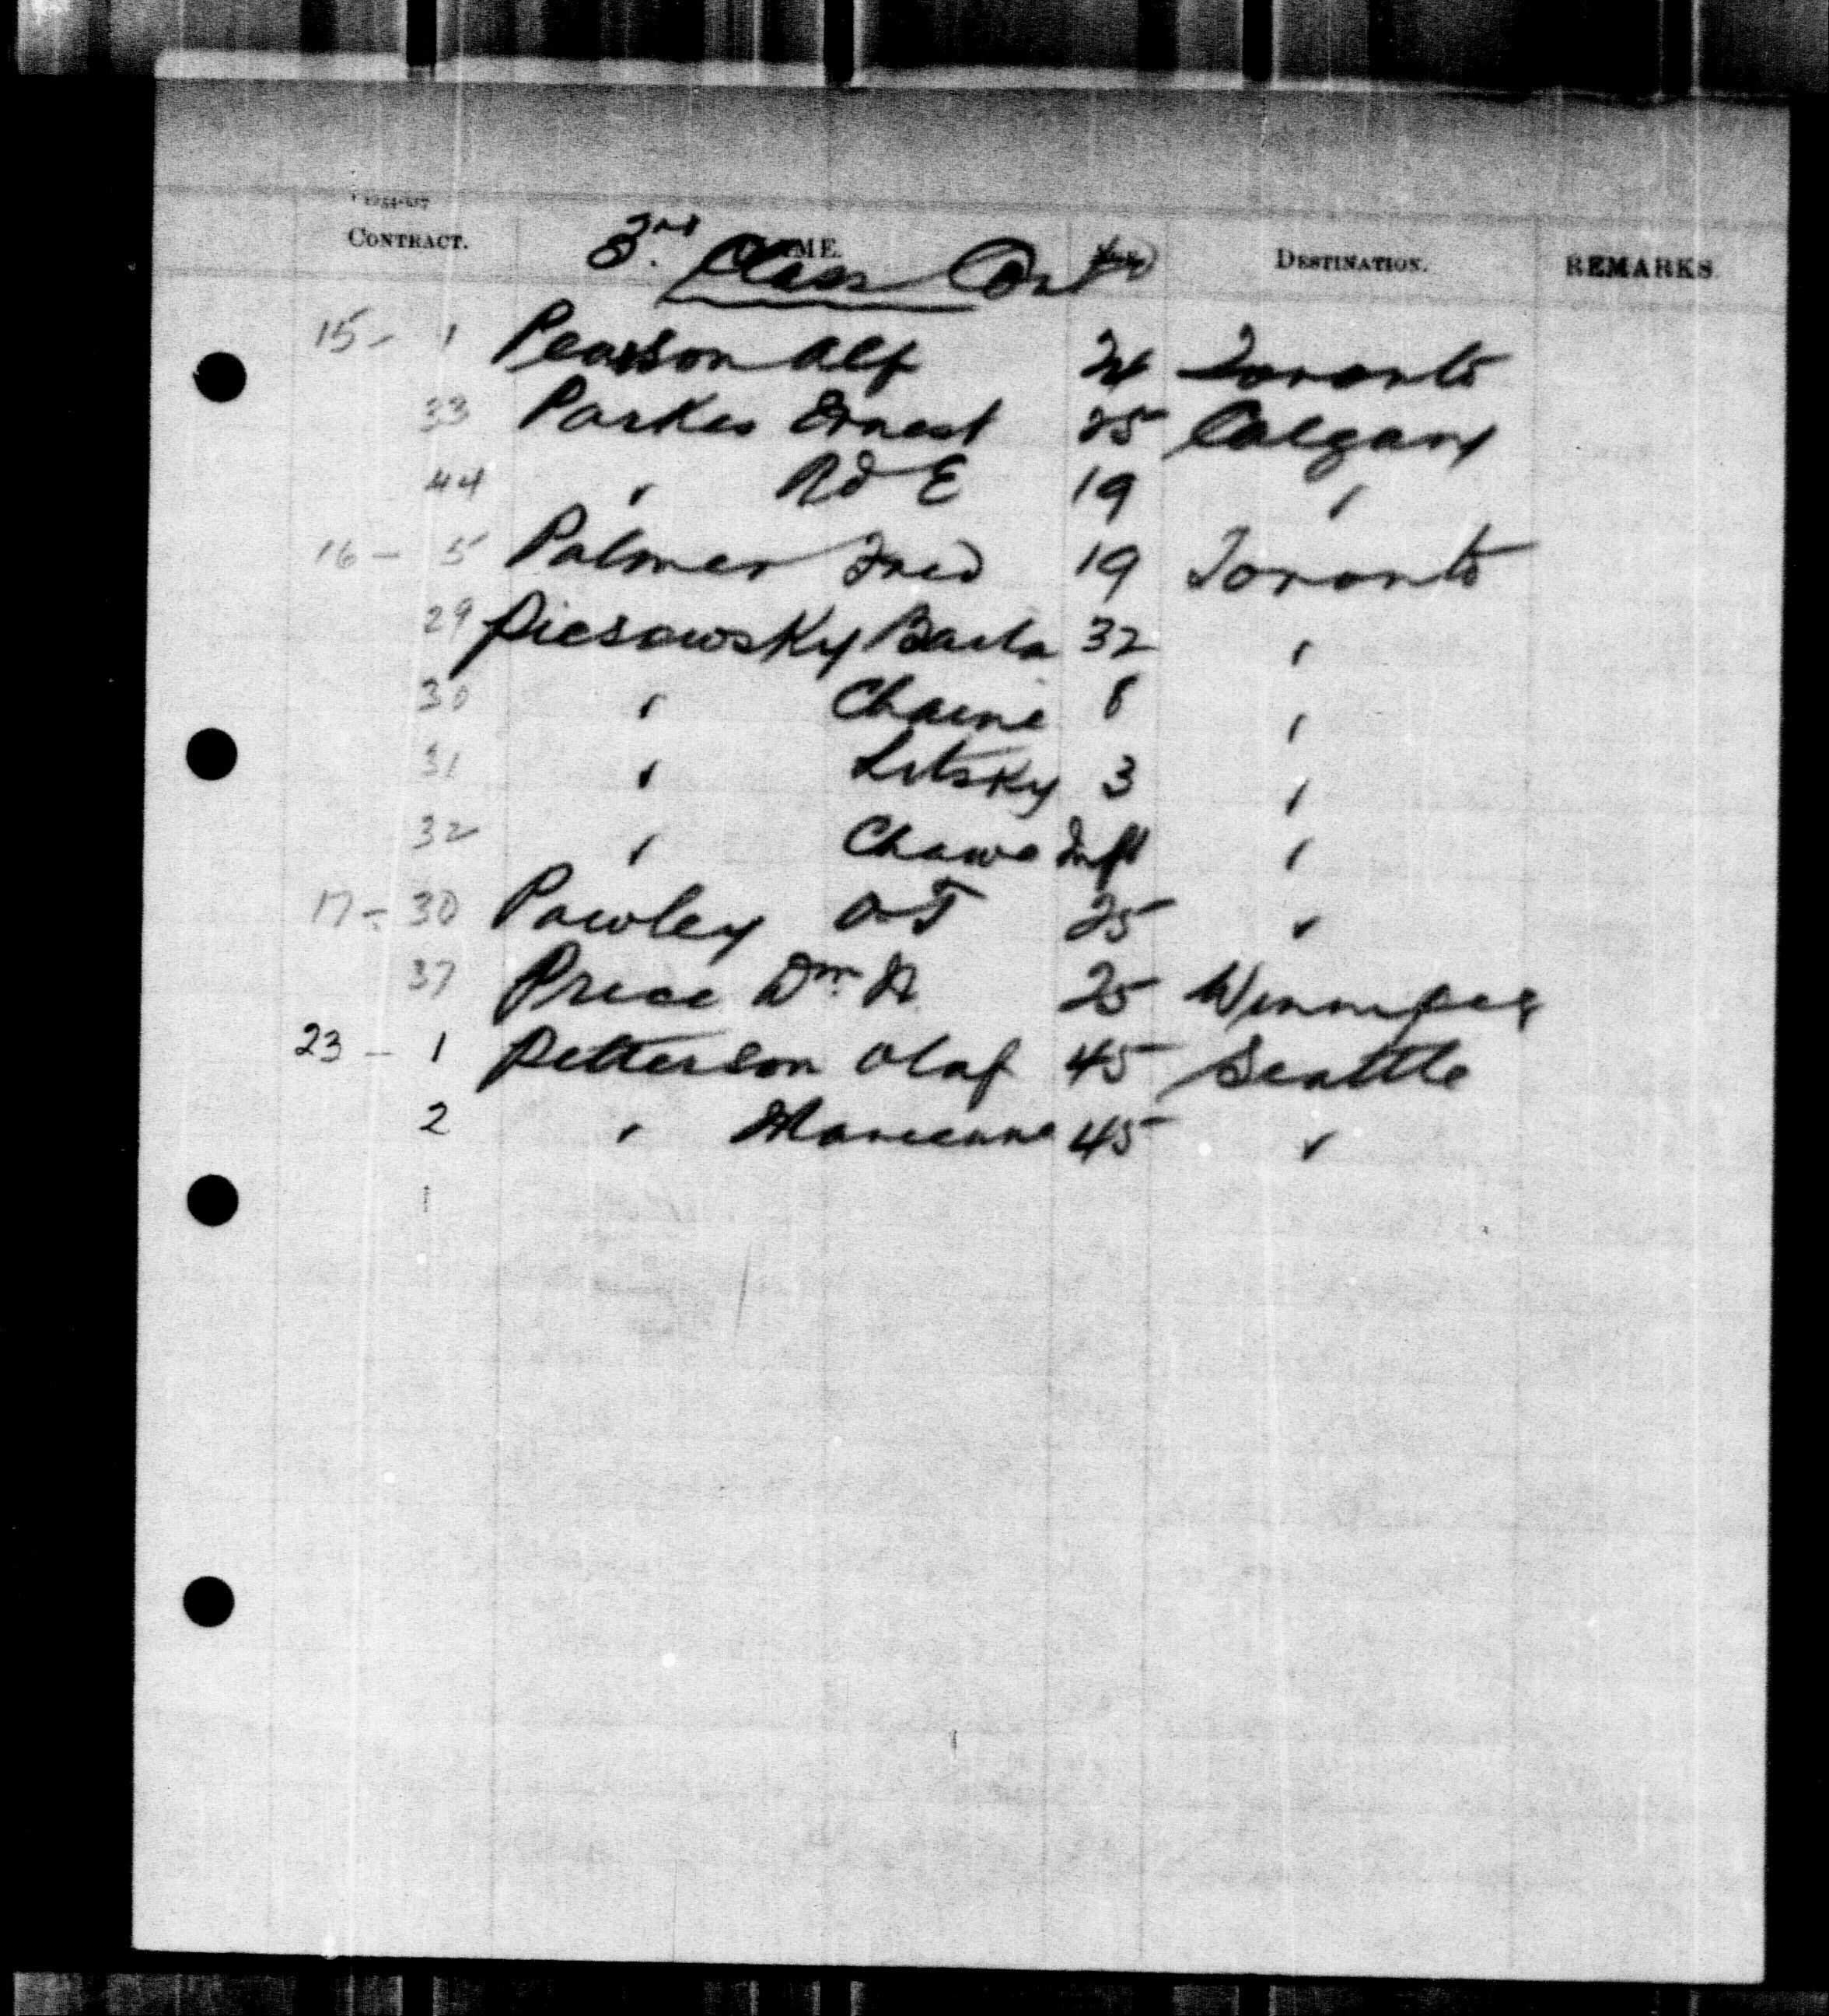 CONTRACT. NAME. DESTINATION. REMARKS
3rd Class Con
15 - 1 Pearson Alf 24 Toronto
33 Parkes Ernest 25 Calgary
44 " Rd E 19 "
16 - 5 Palmer Fred 19 Toronto
29 Piesowsky Basha 32 "
30 " Chaine 8 "
31 " Litsky 3 "
32 " Chawe Inft "
17 - 30 Pawley A T 25 "
37 Price Wm H 25 Winnipeg
23 - 1 Petterson Olaf 45 Seattle
2 " 45 "